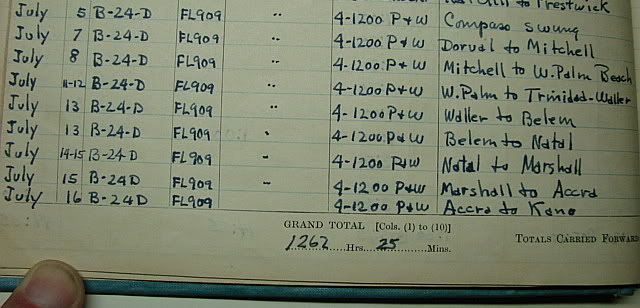 to Prestwick
July 5 B-24-D FL909 " 4-1200 P+W Compass swung
July 7 B-24-D FL909 " 4-1200 P+W Dorval to Mitchell
July 8 B-24-D FL909 " 4-1200 P+W Mitchell to W.Palm Beach
July 11-12 B-24-D FL909 " 4-1200 P+W W.Palm to Trinidad-Waller
July 13 B-24-D FL909 " 4-1200 P+W Waller to Belem
July 13 B-24-D FL909 " 4-1200 P+W Belem to Natal
July 14-15 B-24-D FL909 " 4-1200 P+W Natal to Marshall
July 15 B-24D FL909 " 4-1200 P+W Marshall to Accra
July 16 B-24D FL909 4-1200 P+W Accra to Kano
GRAND TOTAL [Cols. (1) to (10)]
1262 Hrs. 25 Mins.
TOTALS CARRIED FORWARD